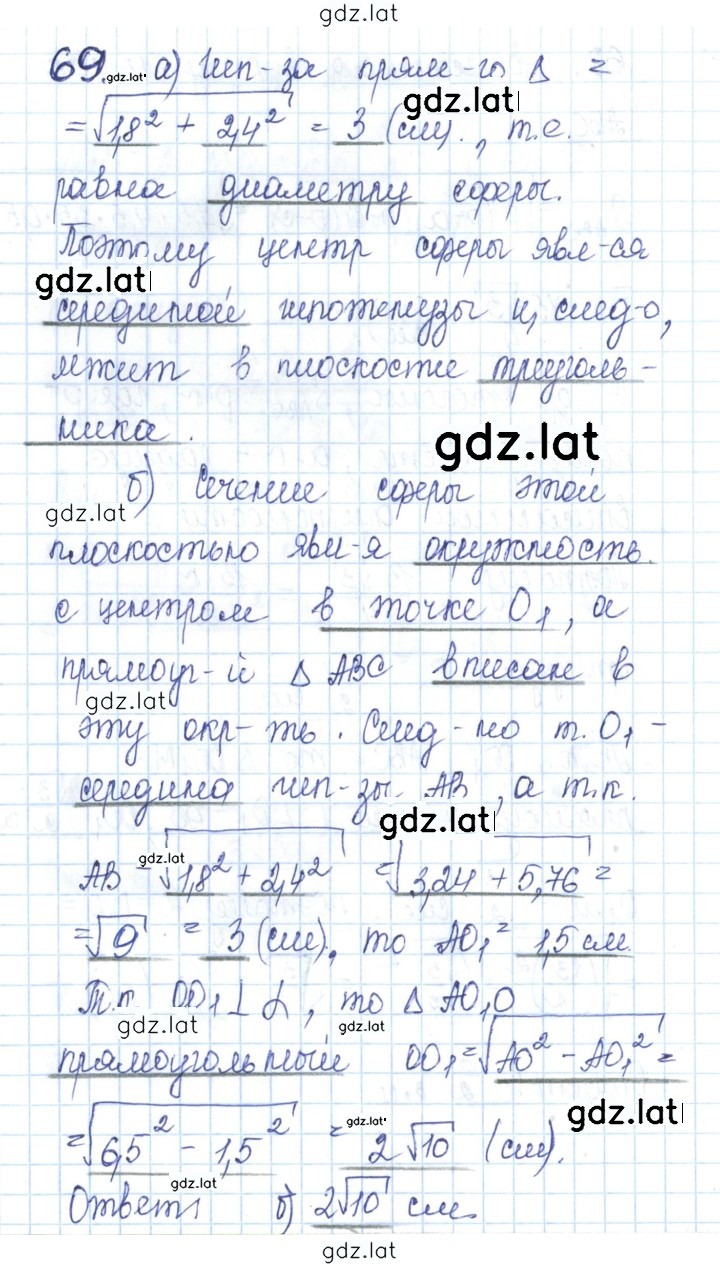 gdz.lat
69. gdz.lat а) Гип-за прям-го Δ =
gdz.lat
= √1,8² + 2,4² = 3 (см)., т.е.
равна диаметру сферы.
Поэтому центр сферы явл-ся
gdz.lat
серединой гипотенузы и, след-о,
лежит в плоскости треуголь-
ника.
gdz.lat
б) Сечение сферы этой
gdz.lat
плоскостью явл-я окружность
с центром в точке O₁, а
прямоуг-й Δ ABC вписан в
gdz.lat
эту окр-ть. След-но т. O₁ -
середина гип-зы AB, а т.к.
gdz.lat
AB = √1,8² + 2,4² = √3,24 + 5,76 =
gdz.lat
= √9 = 3 (см), то AO₁ = 1,5 см
Т.к. OO₁ ⊥ α, то Δ AO₁O
gdz.lat gdz.lat
прямоугольный OO₁ = √AO² - AO₁² =
gdz.lat
= √6,5² - 1,5² = 2√10 (см).
gdz.lat
gdz.lat
Ответ: б) 2√10 см.
gdz.lat